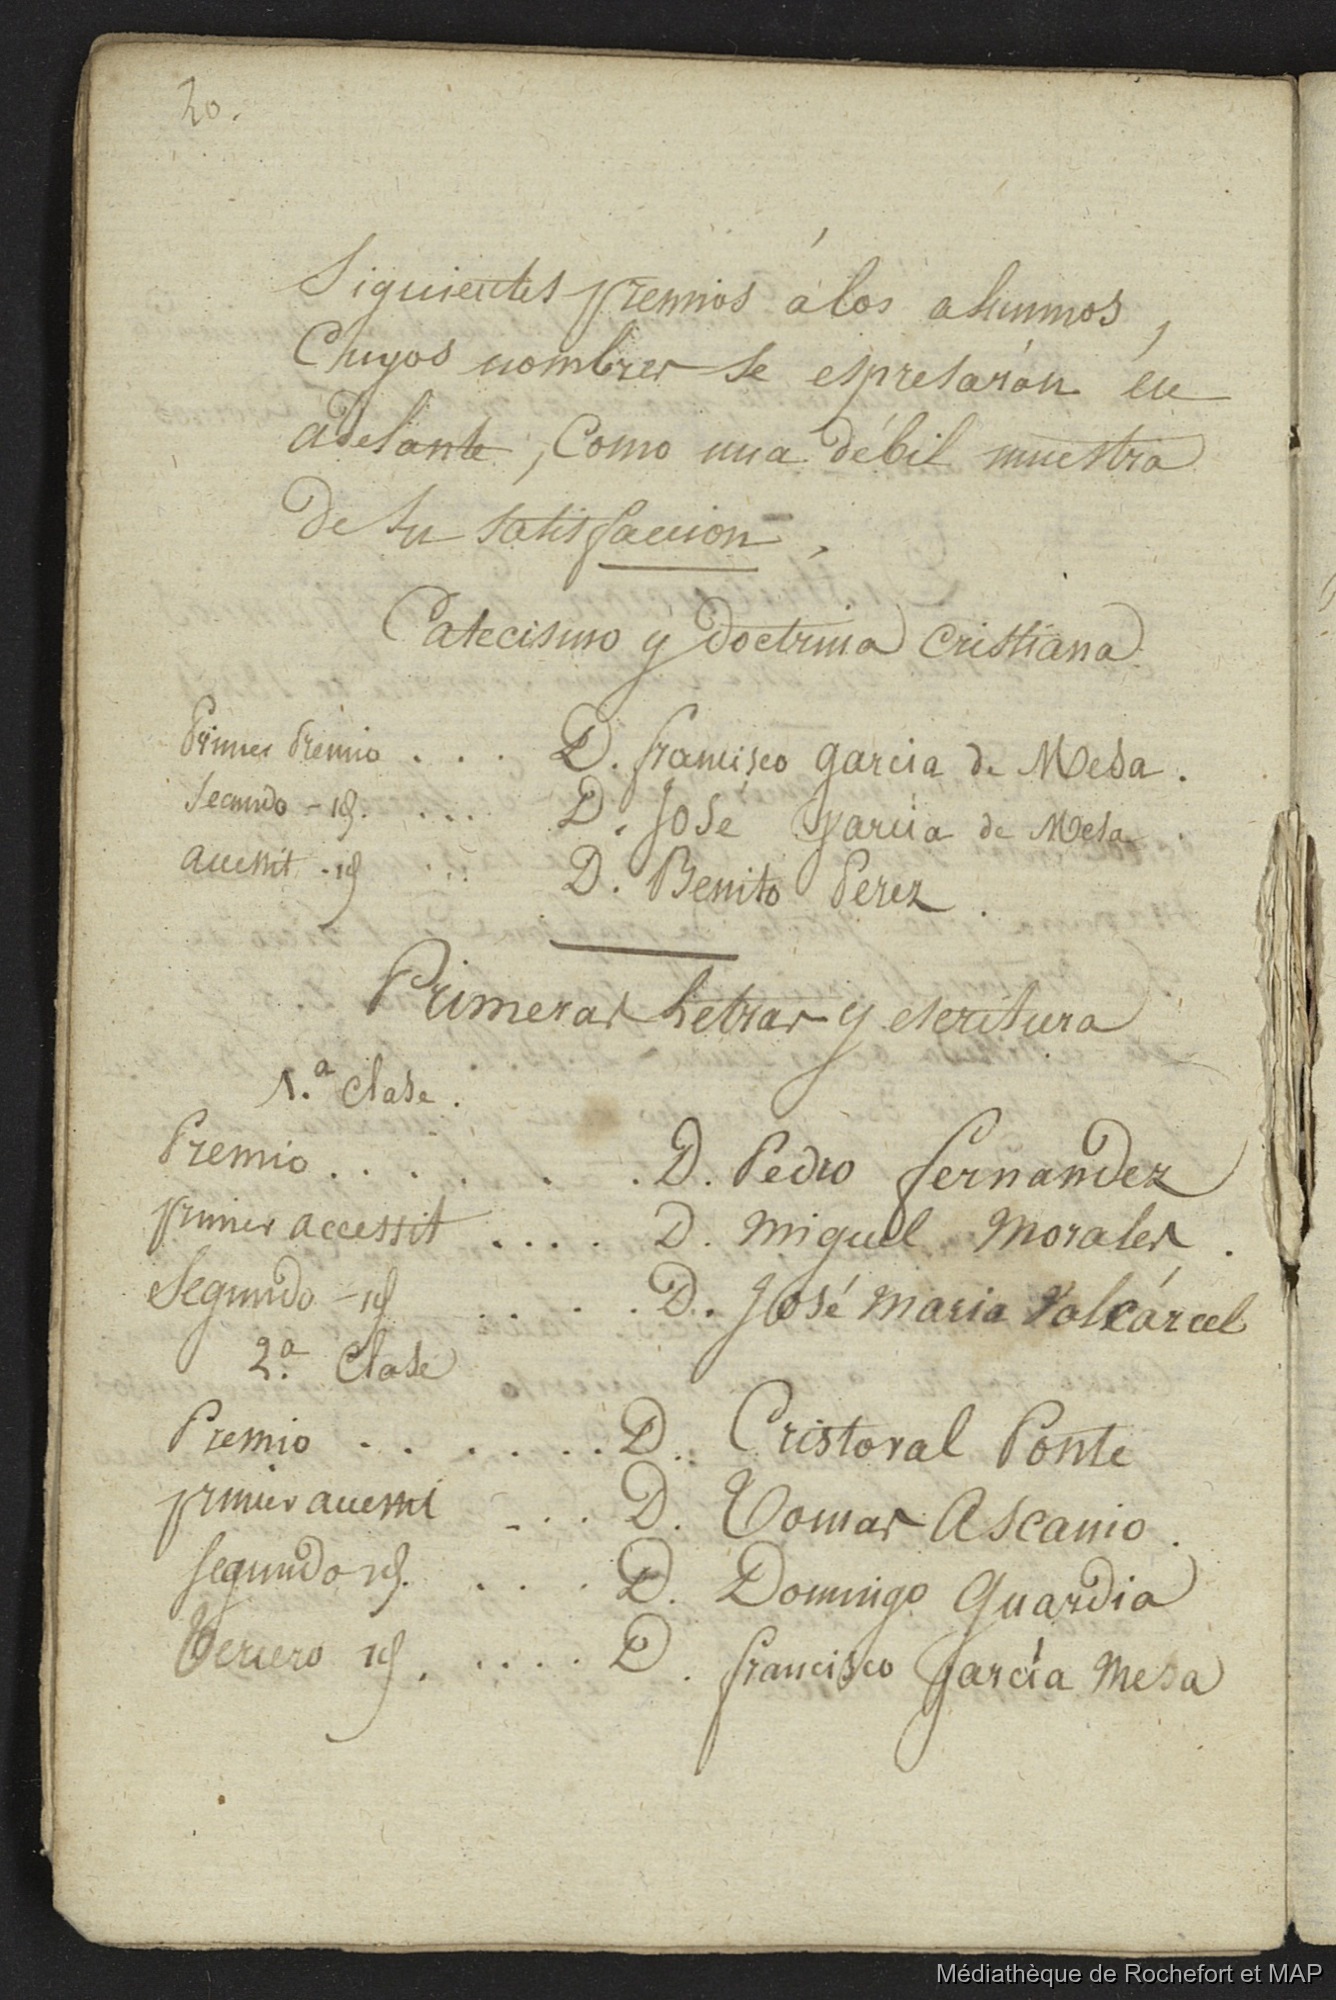 20.
Siguientes premios á los alumnos,
Cuyos nombres se espresarán en
adelante, Como una débil muestra
de su satisfaccion.
Catecismo y doctrina cristiana
Primer Premio .... D. francisco garcia de Mesa.
Segundo - id. .... D. José garcia de Mesa.
accessit - id ... D. Benito Perez.
Primeras Letras y escritura
1.ª Clase.
Premio ....... D. Pedro fernandez
primer accessit .... D. Miguel Morales.
Segundo - id ..... D. José Maria Valcárcel
2.ª Clase
Premio ...... D. Cristoval Ponte
primer accessit ... D. Tomas Ascanio.
segundo id. ... D. Domingo Guardia
Tercero id. .... D. francisco García Mesa
Médiathèque de Rochefort et MAP